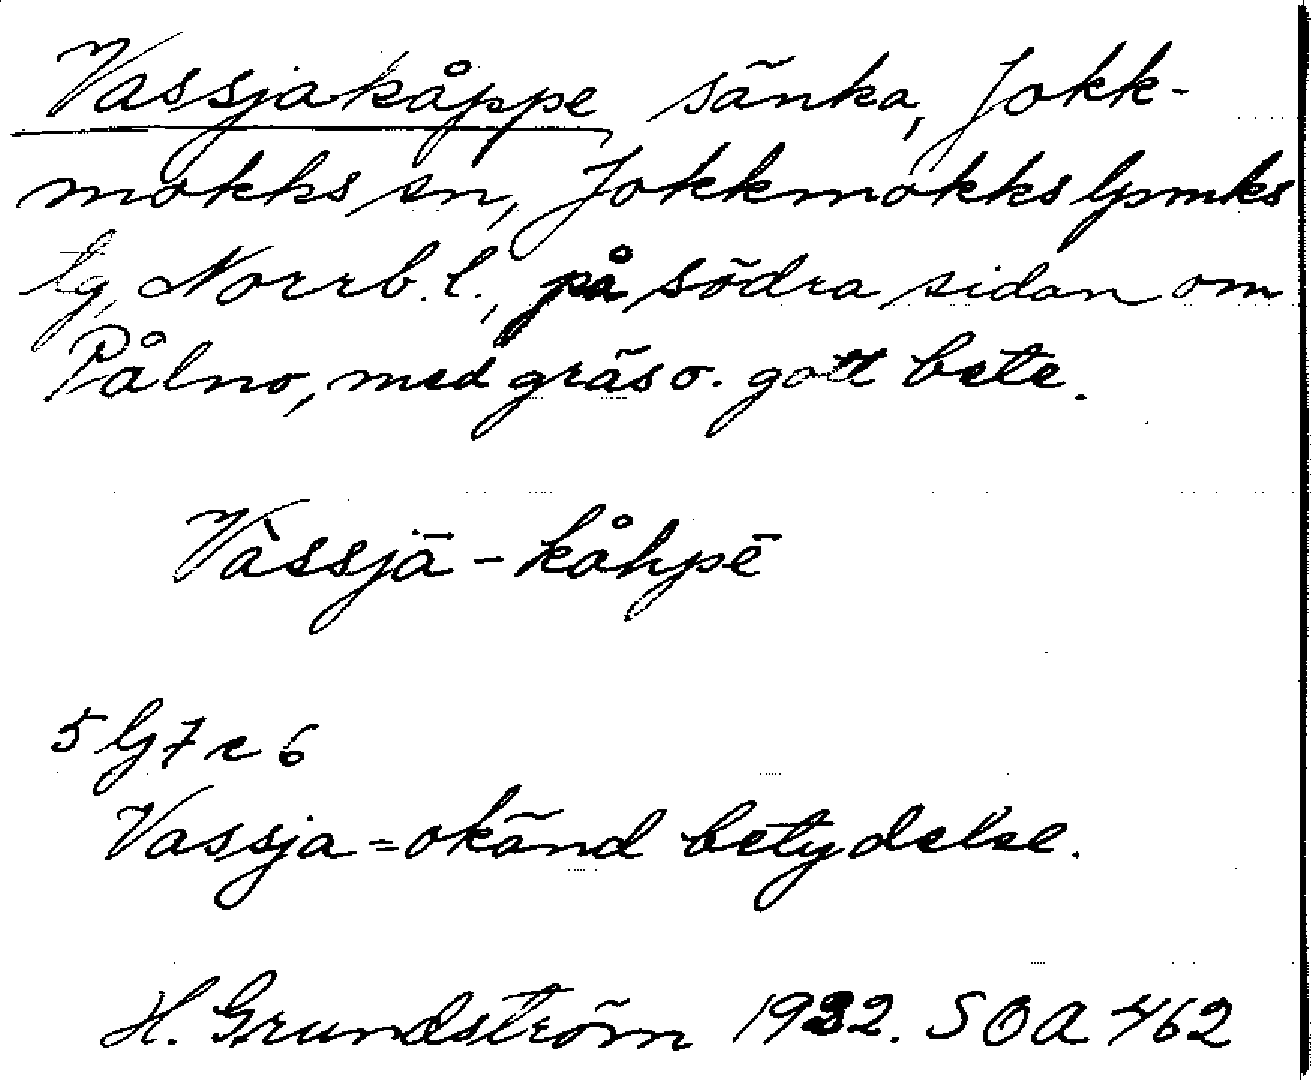 Vassjakåppe sänka, Jokk-
mokks sn, Jokkmokks lpmks
tg, Norrb. l., på södra sidan om
Pålno, med gräs o. gott bete.
Vàssjā - kåhpē
5 G 7 c 6
Vassja = okänd betydelse.
H. Grundström 1932. SOA 462